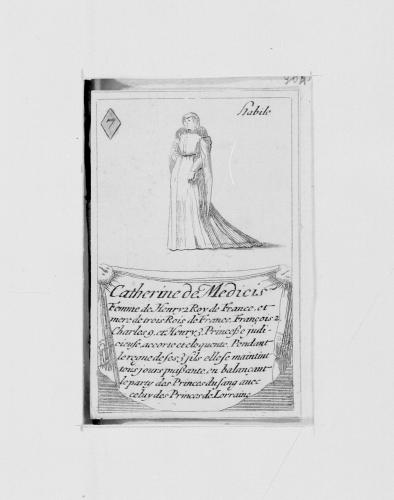 7
Habile
Catherine de Medicis
Femme de Henry 2 Roy de France, et
mere de trois Rois de France, François 2
Charles 9. et Henry 3. Princesse judi-
cieuse, accorte et eloquente. Pendant
le regne de ses 3 fils elle se maintint
tousjours puissante, en balançant
le party des Princes du sang avec
celuy des Princes de Lorraine